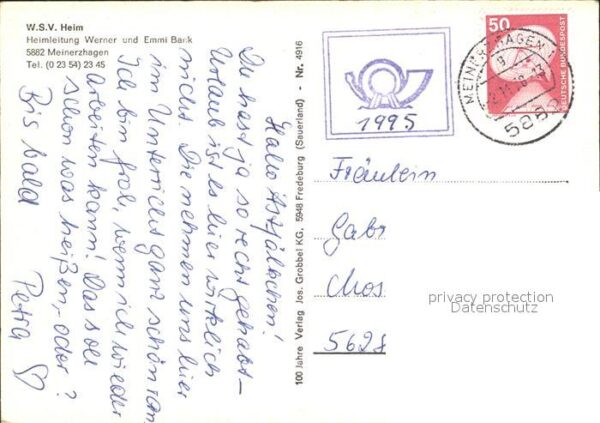 W.S.V. Heim
Heimleitung Werner und Emmi Bank
5882 Meinerzhagen
Tel. (0 23 54) 23 45
Hallo
Du hast ja so recht gehabt-
Urlaub ist es hier wirklich
nicht. Die nehmen uns hier
im Unterricht ganz schön ran
Ich bin froh, wenn ich wieder
arbeiten kann! Das soll
schon was heißen,- oder?
Bis bald
Petra
100 Jahre Verlag Jos. Grobbel KG, 5948 Fredeburg (Sauerland) - Nr. 4916
1995
50
DEUTSCHE BUNDESPOST
MEINERZHAGEN
5882
Fräulein
Gabi
privacy protection
Datenschutz